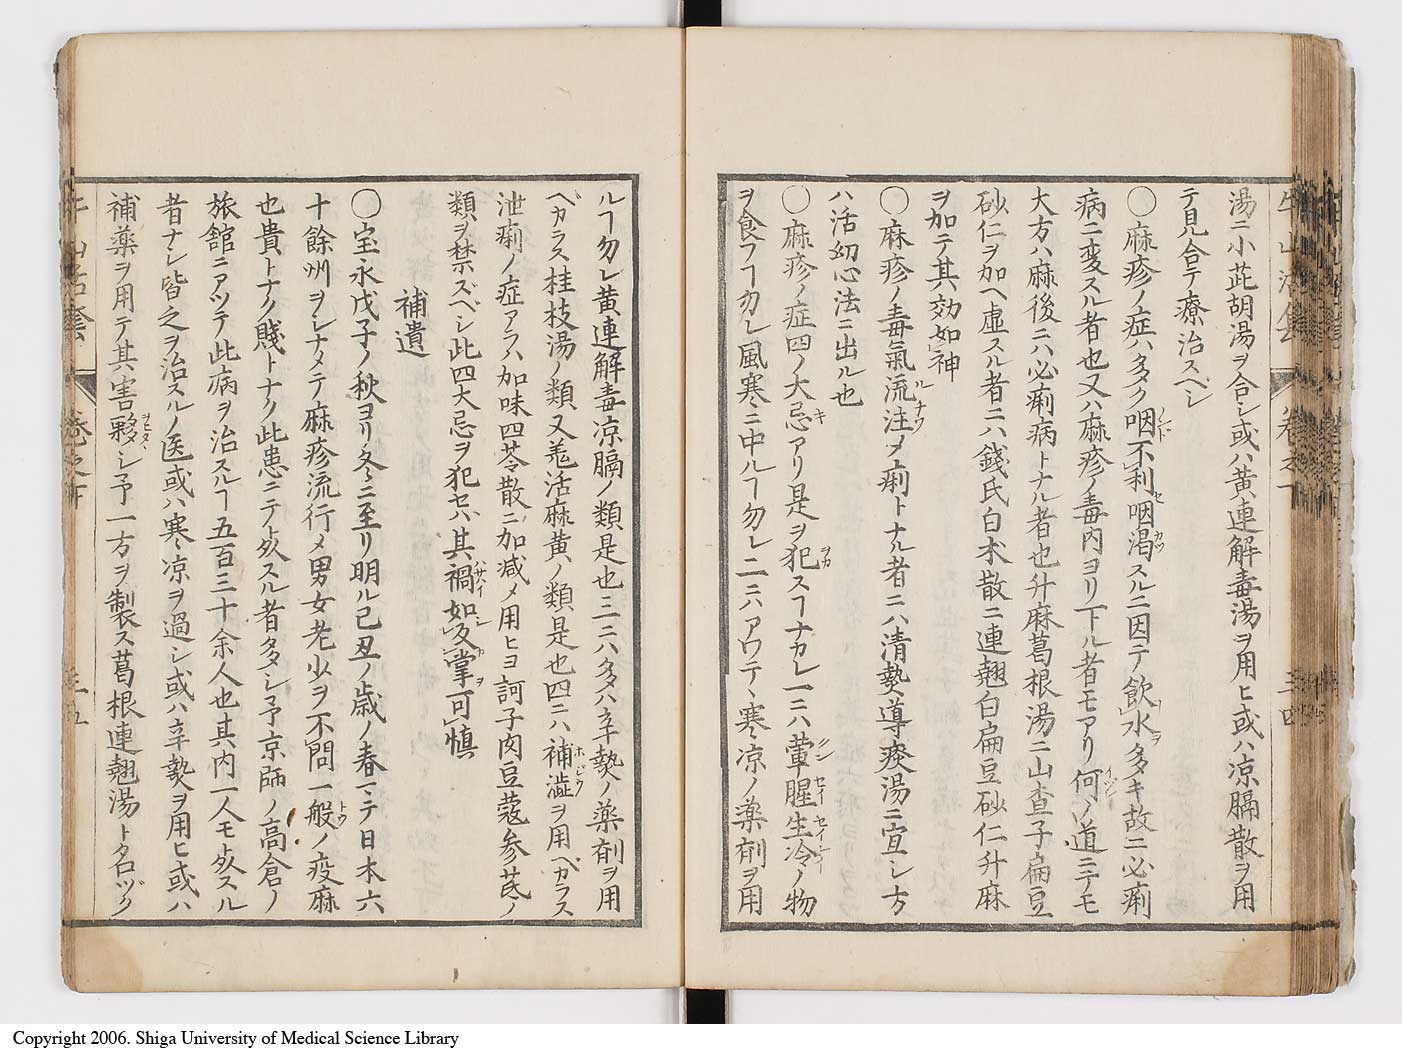 湯ニ小茈胡湯ヲ合シ或ハ黄連解毒湯ヲ用ヒ或ハ凉膈散ヲ用
テ見合テ療治スベシ
〇麻疹ノ症ハ多ク咽不利咽渇スルニ因テ飲水多キ故ニ必痢
病ニ変スル者也又ハ麻疹ノ毒内ヨリ下ル者モアリ何ノ道ニテモ
大方ハ麻後ニハ必痢病トナル者也升麻葛根湯ニ山査子扁豆
砂仁ヲ加ヘ虚スル者ニハ錢氏白朮散ニ連翹白扁豆砂仁升麻
ヲ加テ其効如神
〇麻疹ノ毒氣流注乄痢トナル者ニハ清䓺導痰湯ニ宜シ方
ハ活幼心法ニ出ル也
〇麻疹ノ症四ノ大忌アリ是ヲ犯スヿナカレ一ニハ葷腥生冷ノ物
ヲ食フヿ勿レ風寒ニ中ルヿ勿レ二ニハアワテヽ寒凉ノ薬剤ヲ用
ルヿ勿レ黄連解毒凉膈ノ類是也三ニハ多ハ辛𤍠ノ薬剤ヲ用
ベカラス桂枝湯ノ類又羗活麻黄ノ類是也四ニハ補澁ヲ用ベカラス
泄痢ノ症アラハ加味四苓散ニ加減乄用ヒヨ訶子肉豆蔲参芪ノ
類ヲ禁ズベシ此四大忌ヲ犯セバ其禍如反掌可慎
補遺
〇宝永戊子ノ秋ヨリ冬ニ至リ明ル己丑ノ歳ノ春マテ日本六
十餘州ヲシナメテ麻疹流行乄男女老少ヲ不問一般ノ疫麻
也貴トナク賤トナク此患ニテ死スル者多シ予京師ノ高倉ノ
旅舘ニアツテ此病ヲ治スルヿ五百三十余人也其内一人モ死スル
者ナシ皆之ヲ治スルノ医或ハ寒凉ヲ過シ或ハ辛𤍠ヲ用ヒ或ハ
補薬ヲ用テ其害夥シ予一方ヲ製ス葛根連翹湯ト名ヅク
牛山活套
巻之下
三十五
Copyright 2006. Shiga University of Medical Science Library